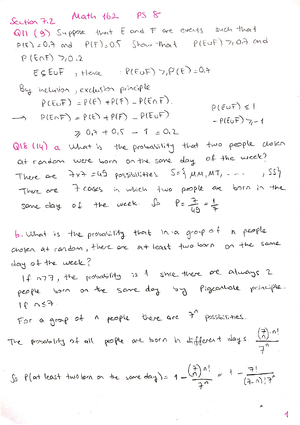 Section 7.2 Math 162 PS 8
Q11 (9) Suppose that E and F are events such that
P(E)=0.7 and P(F)=0.5 Show that P(E∪F) ≥ 0.7 and
P(E∩F) ≥ 0.2
E ⊆ E∪F, Hence P(E∪F) ≥ P(E) = 0.7
By inclusion, exclusion principle
P(E∪F) = P(E) + P(F) - P(E∩F). P(E∪F) ≤ 1
→ P(E∩F) = P(E) + P(F) - P(E∪F) -P(E∪F) ≥ -1
≥ 0.7 + 0.5 - 1 = 0.2
Q18 (14) a. What is the probability that two people chosen
at random were born on the same day of the week?
There are 7×7 = 49 possibilities S={MM, MT, ..., SS}
There are 7 cases in which two people are born in the
same day of the week. So P = 7/49 = 1/7
b. What is the probability that in a group of n people
chosen at random, there are at least two born on the same
day of the week?
If n>7, the probability is 1 since there are always 2
people born on the same day by Pigeonhole principle.
If n≤7.
For a group of n people there are 7^n possibilities.
The probability of all people are born in different days. (7 n) n! / 7^n
So P(at least two born on the same day) = 1 - (7 n) n! / 7^n = 1 - 7! / (7-n)! 7^n
1